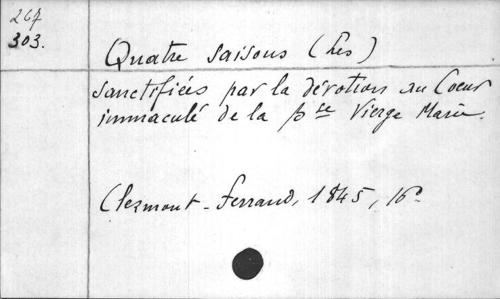 267
303.
Quatre saisons (Les)
sanctifiées par la dévotion au Coeur
immaculé de la Ste Vierge Marie.
Clermont-Ferrand, 1845, 16°